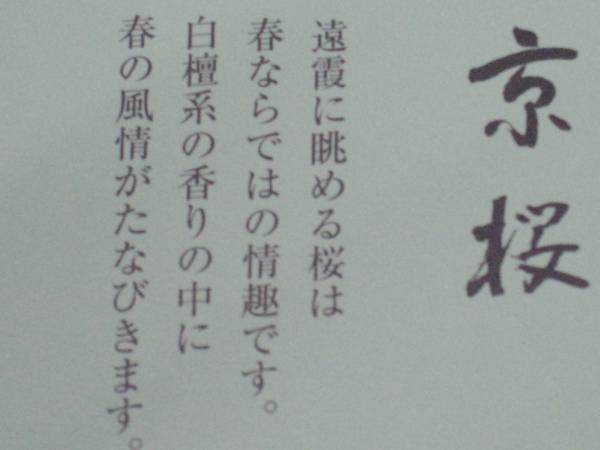 京桜
遠霞に眺める桜は
春ならではの情趣です。
白檀系の香りの中に
春の風情がたなびきます。